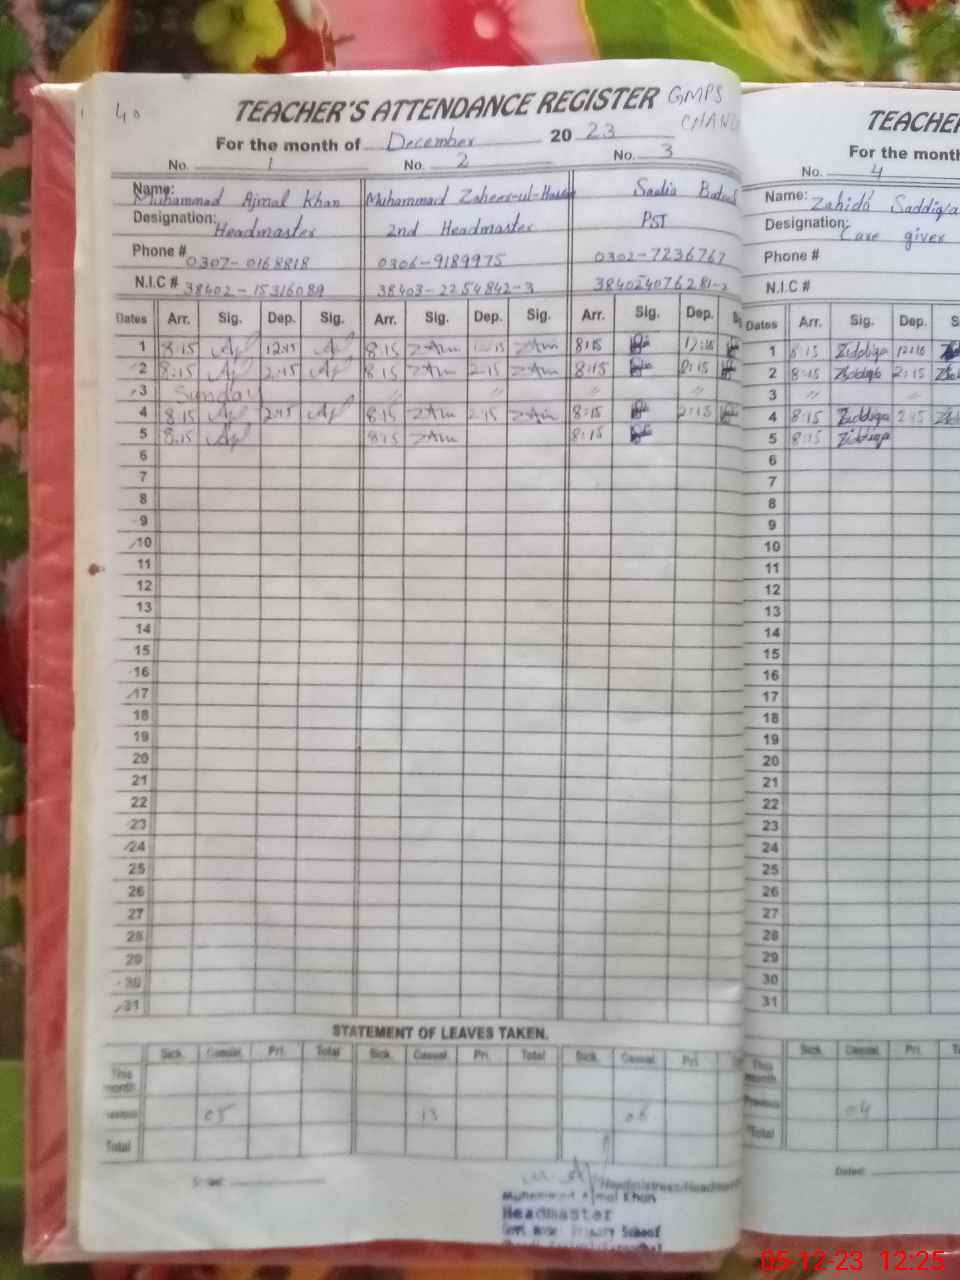 40
TEACHER'S ATTENDANCE REGISTER GMPS
For the month of December 20 23
No. 1 No. 2 No. 3
Name: Muhammad Ajmal Khan Muhammad Zaheer-ul-Hassan Sadia
Designation: Headmaster 2nd Headmaster PST
Phone # 0307-0168818 0306-9189975 0302-7236767
N.I.C # 38402-15316089 38403-2254842-3 384024076281-2
Dates Arr. Sig. Dep. Sig. Arr. Sig. Dep. Sig. Arr. Sig. Dep.
1 8:15 12:15 8:15 ZAm ZAm 8:15
2 8:15 2:15 8:15 ZAm 2:15 ZAm 8:15
3 Sunday
4 8:15 2:15 8:15 ZAm 2:15 ZAm 8:15 2:15
5 8:15 8:15 ZAm 8:15
6
7
8
9
10
11
12
13
14
15
16
17
18
19
20
21
22
23
24
25
26
27
28
29
30
31
STATEMENT OF LEAVES TAKEN.
Sick. Casual. Pri. Total Sick. Casual. Pri. Total Sick. Casual. Pri.
This month.
05 13 06
Total
Muhammad Ajmal Khan
Headmaster
Primary School
TEACHER
For the month
No. 4
Name: Zahida Saddiqa
Designation: Care giver
Phone #
N.I.C #
Dates Arr. Sig. Dep.
1 8:15 12:16
2 8:15 2:15
3 〃 〃
4 8:15 2:15
5 8:15
6
7
8
9
10
11
12
13
14
15
16
17
18
19
20
21
22
23
24
25
26
27
28
29
30
31
Sick. Casual. Pri.
This month.
Previous 04
Total
Dated:
05-12-23 12:25